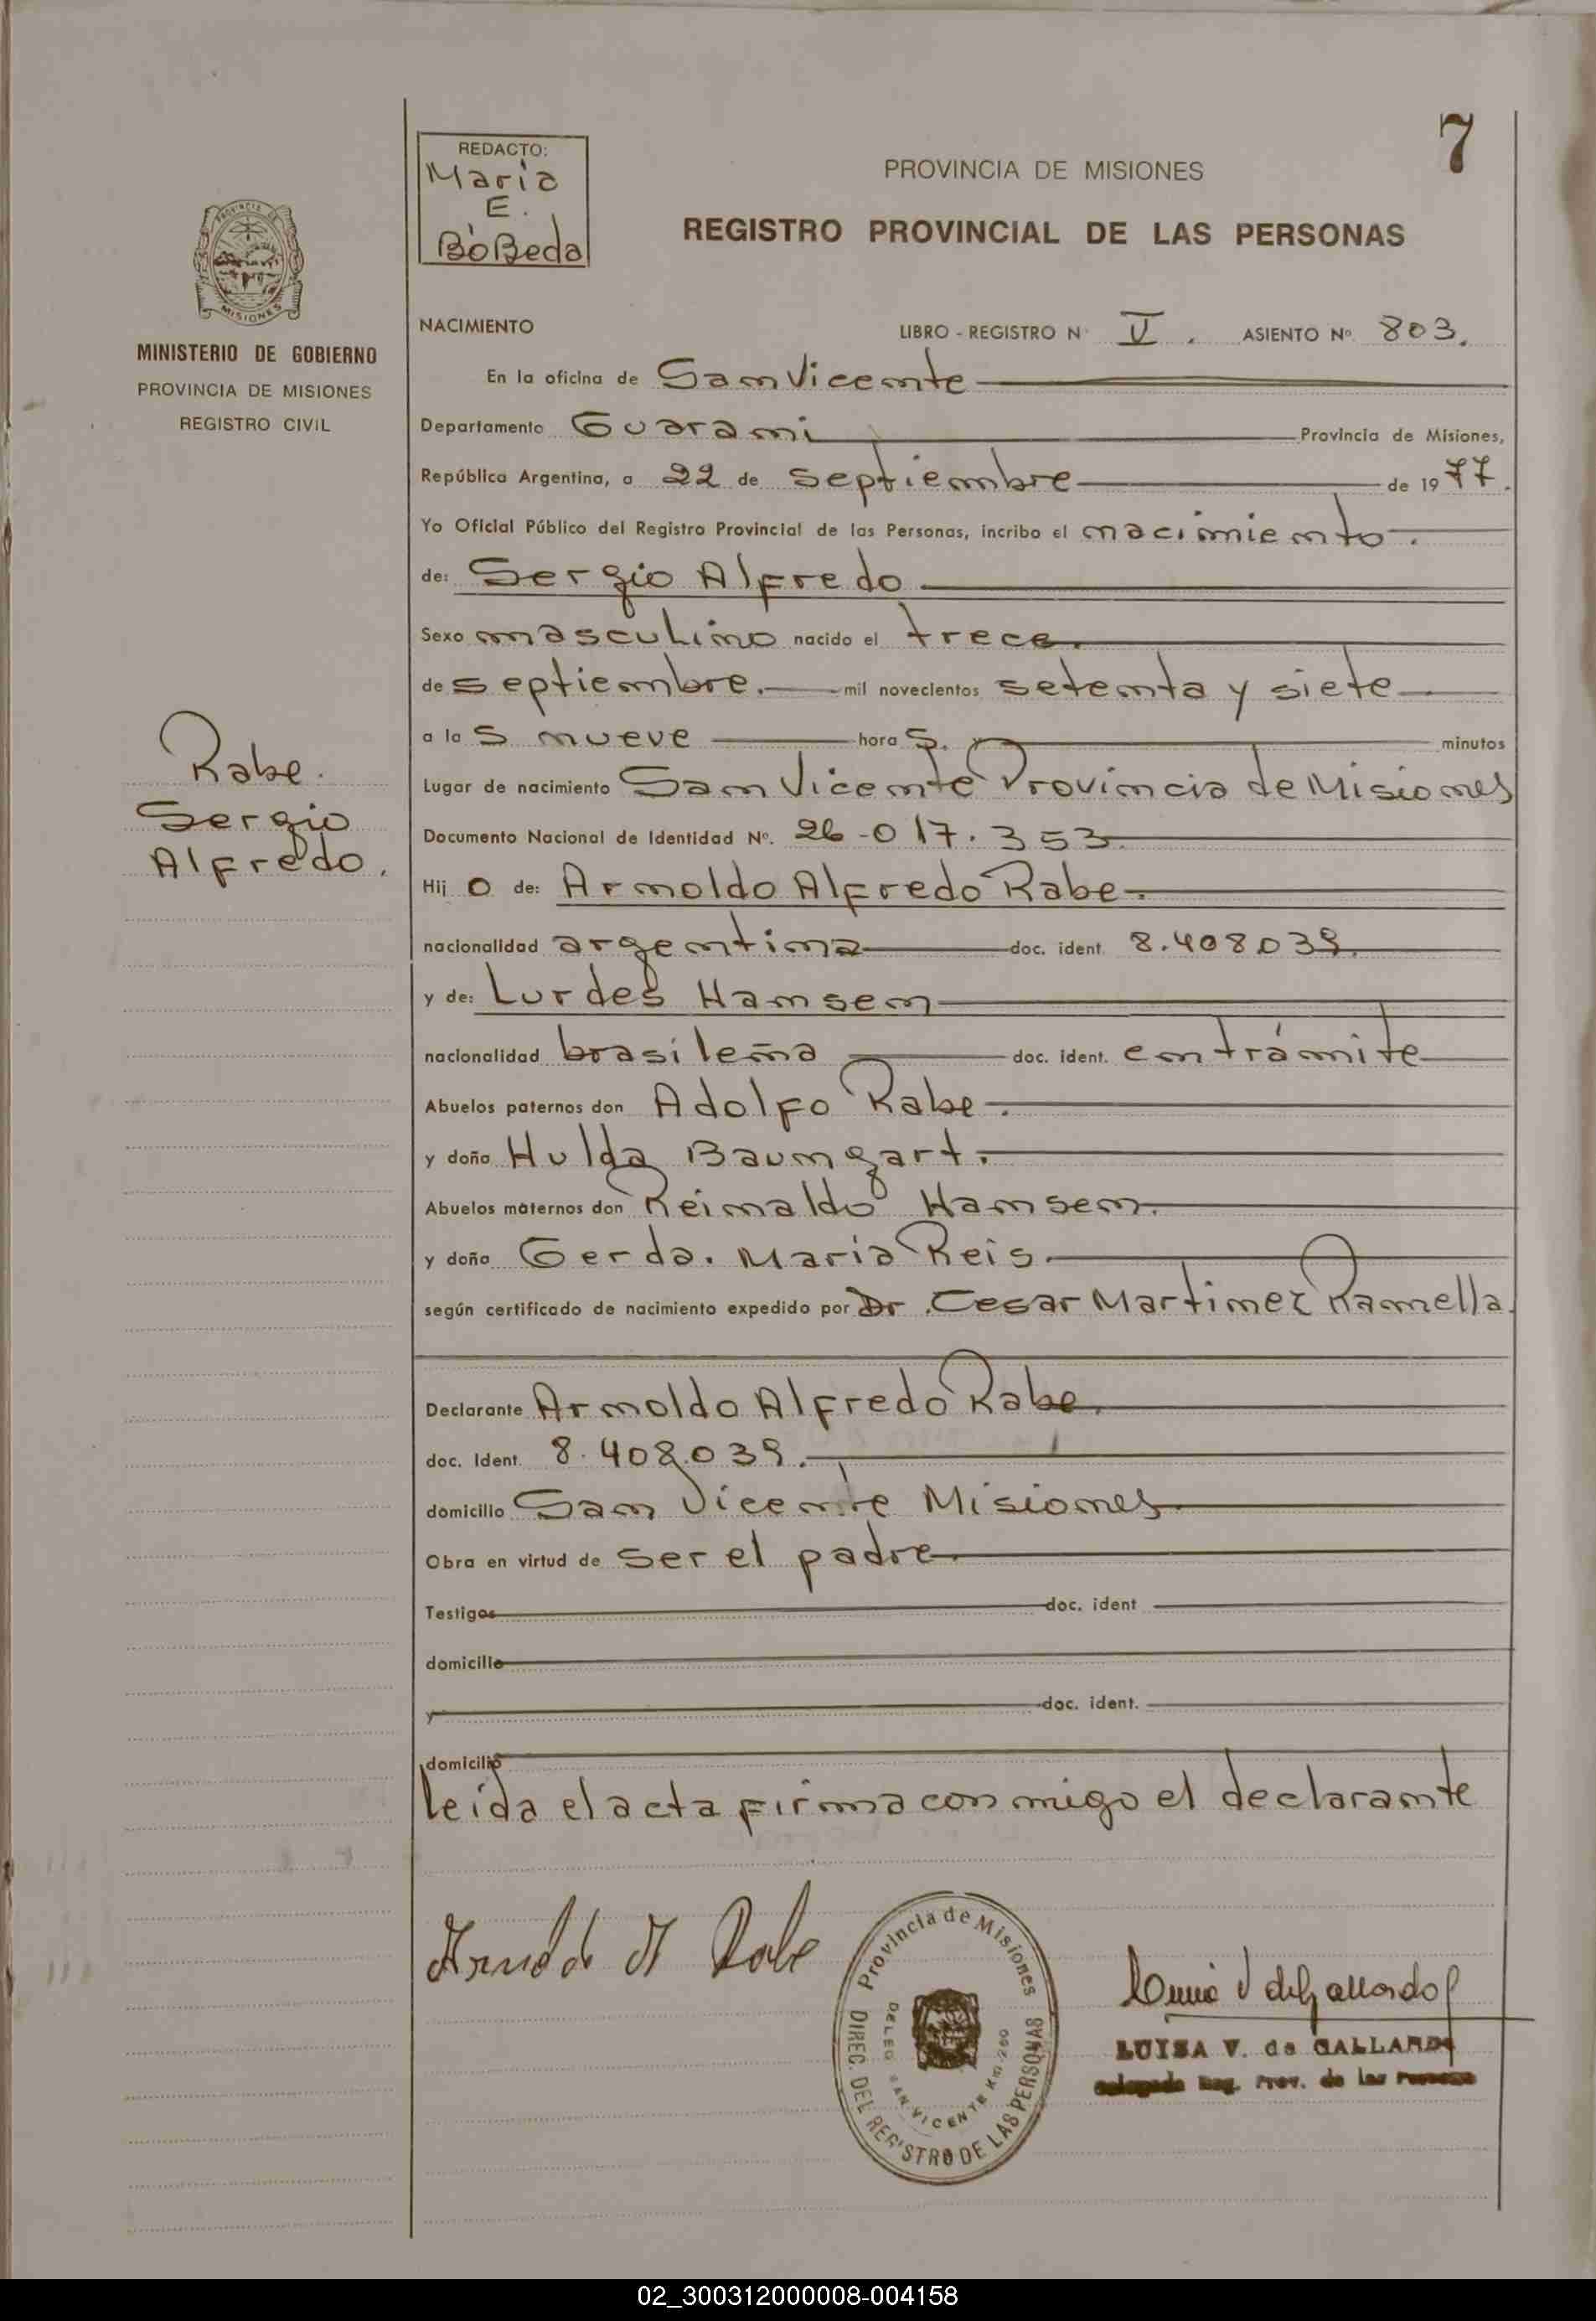 7
REDACTO:
Maria
E.
BóBeda
PROVINCIA DE MISIONES
REGISTRO PROVINCIAL DE LAS PERSONAS
PROVINCIA DE
MISIONES
MINISTERIO DE GOBIERNO
PROVINCIA DE MISIONES
REGISTRO CIVIL
Rabe.
Sergio
Alfredo.
NACIMIENTO LIBRO - REGISTRO N° V. ASIENTO Nº 803.
En la oficina de San Vicente
Departamento Guarani Provincia de Misiones,
República Argentina, a 22 de septiembre de 1977.
Yo Oficial Público del Registro Provincial de las Personas, incribo el nacimiento.
de: Sergio Alfredo
Sexo masculino nacido el trece.
de septiembre. mil novecientos setenta y siete
a las nueve horas. y minutos
Lugar de nacimiento San Vicente Provincia de Misiones
Documento Nacional de Identidad Nº. 26-017.353.
Hijo de: Arnoldo Alfredo Rabe.
nacionalidad argentina doc. ident. 8.408039.
y de: Lurdes Hansen
nacionalidad brasileña doc. ident. en trámite
Abuelos paternos don Adolfo Rabe.
y doña Hulda Baumgart.
Abuelos maternos don Reinaldo Hansen.
y doña Gerda. Maria Reis.
según certificado de nacimiento expedido por Dr. Cesar Martinez Ramella.
Declarante Arnoldo Alfredo Rabe.
doc. Ident. 8.408.039.
domicilio San Vicente Misiones
Obra en virtud de ser el padre.
Testigos doc. ident
domicilio
y doc. ident.
domicilio
leída el acta firma con migo el declarante
Arnoldo A Rabe
Provincia de Misiones
DIREC. DEL REGISTRO DE LAS PERSONAS
DELEG SAN VICENTE
LUISA V. de GALLARDO
Delegada Reg. Prov. de las Personas
02_300312000008-004158